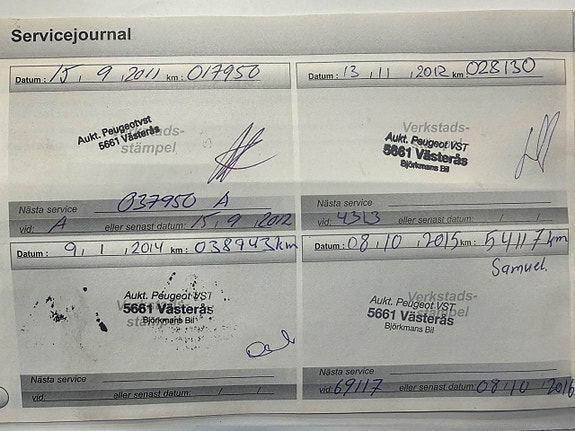 Servicejournal
Datum : 15 , 9 , 2011 km : 017950
Aukt. Peugeotvst
5661 Västerås
Verkstads-
stämpel
Nästa service 037950 A
vid: A eller senast datum: 15 , 9 , 2012
Datum : 13 , 11 , 2012 km 028130
Verkstads-
Aukt. Peugeot VST
5661 Västerås
Björkmans Bil
Nästa service
vid: 4313 eller senast datum: / /
Datum : 9 , 1 , 2014 km : 038943km
Aukt. Peugeot VST
5661 Västerås
Björkmans Bil
Nästa service
vid: eller senast datum: / /
Datum : 08 , 10 , 2015 km : 54117 km
Samuel
Verkstads-
Aukt. Peugeot VST
5661 Västerås
Björkmans Bil
Nästa service
vid: 69117 eller senast datum: 08 / 10 , 2016